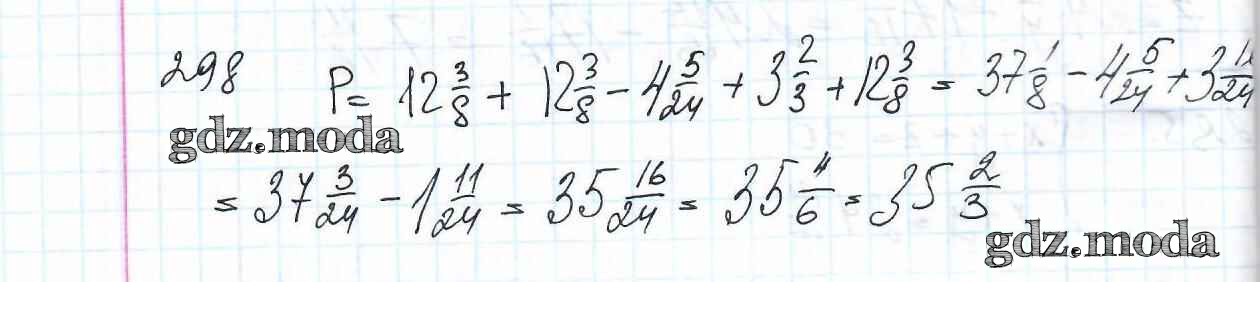 298 P = 12 3/8 + 12 3/8 - 4 5/24 + 3 2/3 + 12 3/8 = 37 1/8 - 4 5/24 + 3 /24
gdz.moda
= 37 3/24 - 1 11/24 = 35 16/24 = 35 4/6 = 35 2/3
gdz.moda